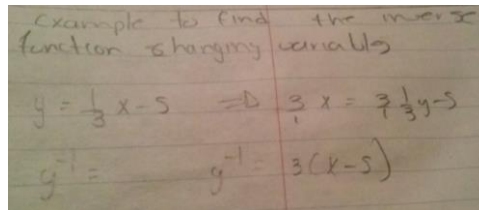 Example to find the inverse
function changing variables
y = 1/3 x - 5 => 3/1 x = 3/1 1/3 y - 5
y^-1 = y^-1 = 3(x - 5)